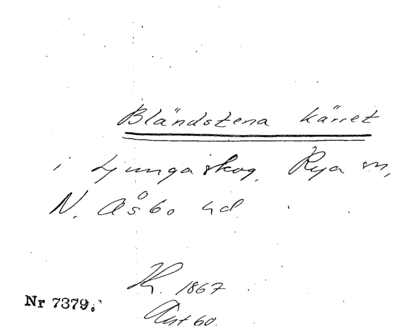 Bländstena kärret
i Ljungaskog, Rya sn,
N. Åsbo hd
H. 1867
Ant 60.
Nr 7379.